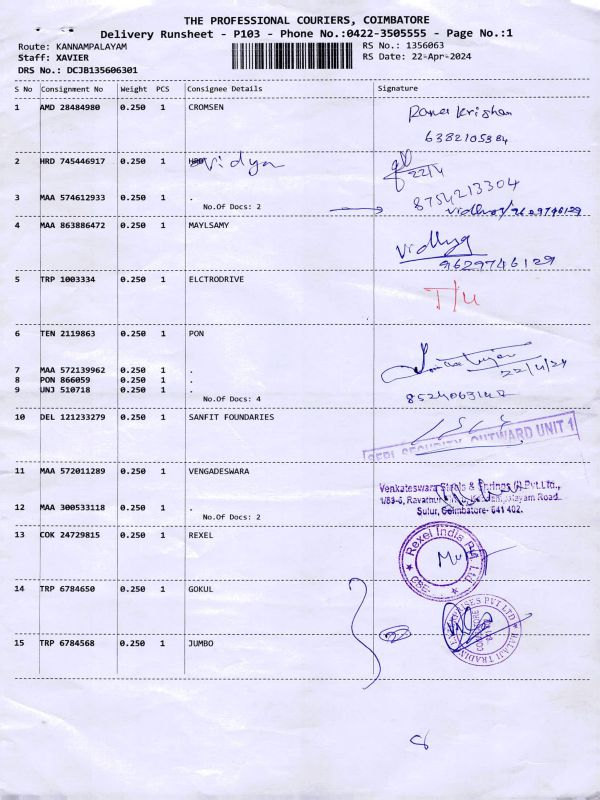 THE PROFESSIONAL COURIERS, COIMBATORE
Delivery Runsheet - P103 - Phone No.:0422-3505555 - Page No.:1
Route: KANNAMPALAYAM RS No.: 1356063
Staff: XAVIER RS Date: 22-Apr-2024
DRS No.: DCJB135606301
S No Consignment No Weight PCS Consignee Details Signature
1 AMD 28484980 0.250 1 CROMSEN
6382105384
2 HRD 745446917 0.250 1 Vidya
22/4
8754213304
3 MAA 574612933 0.250 1 .
No.Of Docs: 2
9629746129
4 MAA 863886472 0.250 1 MAYLSAMY
Vidhya
9629746129
5 TRP 1003334 0.250 1 ELCTRODRIVE
T/U
6 TEN 2119863 0.250 1 PON
22/4/24
7 MAA 572139962 0.250 1 .
8 PON 866059 0.250 1 .
9 UNJ 510718 0.250 1 .
No.Of Docs: 4
10 DEL 121233279 0.250 1 SANFIT FOUNDARIES
SECURITY OUTWARD UNIT 1
11 MAA 572011289 0.250 1 VENGADESWARA
Venkateswara Steels & Springs (I) Pvt.Ltd.,
Sulur, Coimbatore- 641 402.
12 MAA 300533118 0.250 1 .
No.Of Docs: 2
13 COK 24729815 0.250 1 REXEL
Rexel India Pvt. Ltd.
CBE
14 TRP 6784650 0.250 1 GOKUL
2
BALAJI TRADING ENTERPRISES PVT LTD
15 TRP 6784568 0.250 1 JUMBO
8